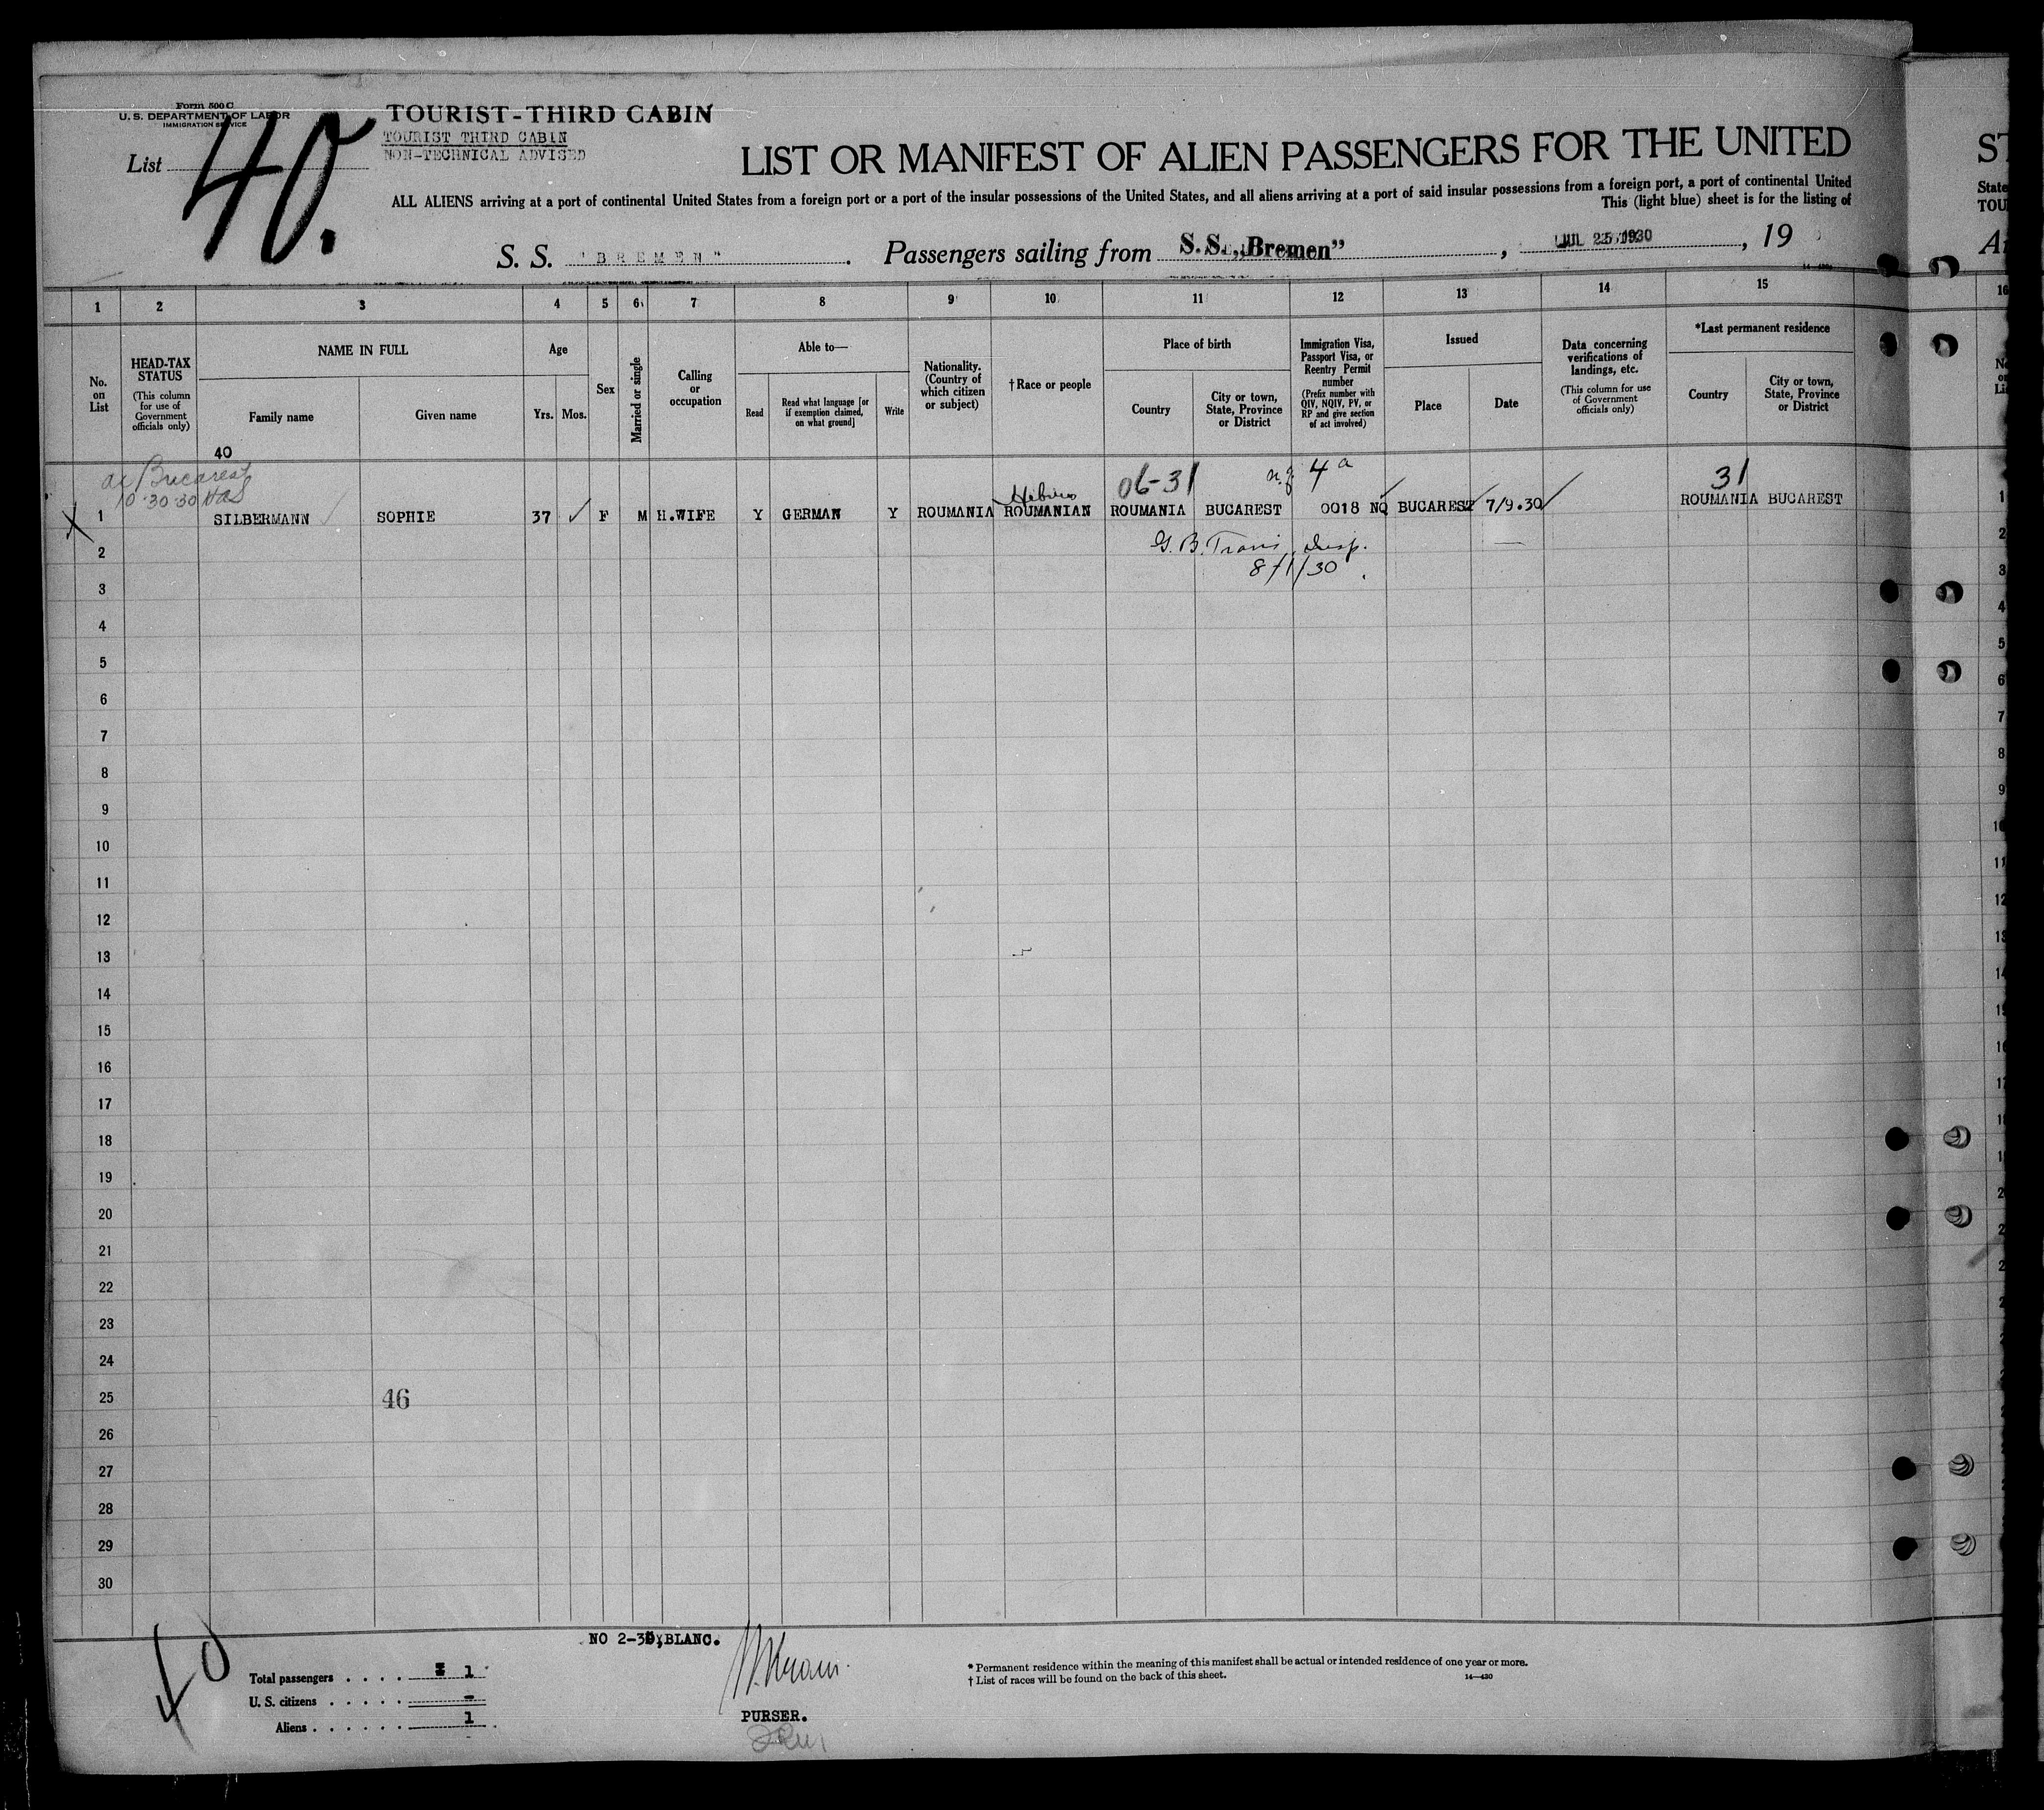 Form 500 C
U. S. DEPARTMENT OF LABOR
IMMIGRATION SERVICE
List 40.
TOURIST-THIRD CABIN
TOURIST THIRD CABIN
NON-TECHNICAL ADVISED
LIST OR MANIFEST OF ALIEN PASSENGERS FOR THE UNITED
ALL ALIENS arriving at a port of continental United States from a foreign port or a port of the insular possessions of the United States, and all aliens arriving at a port of said insular possessions from a foreign port, a port of continental United
This (light blue) sheet is for the listing of
S. S. "BREMEN". Passengers sailing from S. S. „Bremen” , JUL 25 1930 , 19
14—430
1 2 3 4 5 6 7 8 9 10 11 12 13 14 15
No. on List
HEAD-TAX STATUS (This column for use of Government officials only)
NAME IN FULL
Family name
Given name
Age
Yrs. Mos.
Sex
Married or single
Calling or occupation
Able to—
Read
Read what language [or if exemption claimed, on what ground]
Write
Nationality. (Country of which citizen or subject)
†Race or people
Place of birth
Country
City or town, State, Province or District
Immigration Visa, Passport Visa, or Reentry Permit number (Prefix number with QIV, NQIV, PV, or RP and give section of act involved)
Issued
Place
Date
Data concerning verifications of landings, etc. (This column for use of Government officials only)
*Last permanent residence
Country
City or town, State, Province or District
40
Bucarest
10-30-30
Hebrew
06-31
4a
31
1 SILBERMANN SOPHIE 37 F M H.WIFE Y GERMAN Y ROUMANIA ROUMANIAN ROUMANIA BUCAREST 0018 NQ BUCAREST 7/9.30 ROUMANIA BUCAREST
G. B. Travis, Insp.
8/1/30
2
3
4
5
6
7
8
9
10
11
12
13
14
15
16
17
18
19
20
21
22
23
24
25 46
26
27
28
29
30
40
NO 2-30, BLANC.
Total passengers . . . . 1
U. S. citizens . . . . . -
Aliens . . . . . . 1
PURSER.
* Permanent residence within the meaning of this manifest shall be actual or intended residence of one year or more.
† List of races will be found on the back of this sheet.
14—430
ST
State
TOU
16